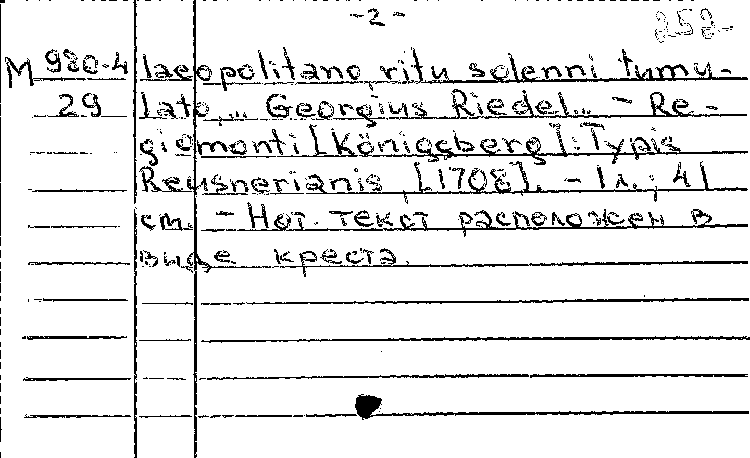 -2-
252
M 980-4 laeopolitano, ritu solenni tumu-
29 lato,... Georgius Riedel... - Re-
giomonti [Königsberg]: Typis
Reusnerianis, [1708]. - 1 л.; 41
см. - Нот. текст расположен в
виде креста.